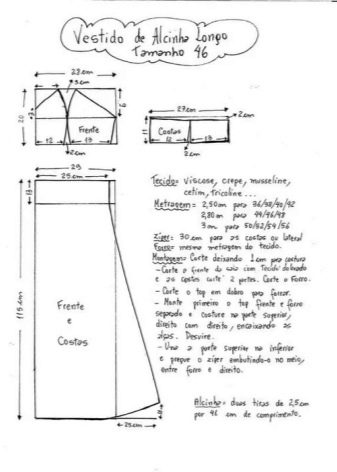 Vestido de Alcinha Longo
Tamanho 46
28cm
3cm
20
6
Frente
12
13
2cm
27cm
2cm
11
Costas
12
13
2cm
29
25cm
13
115cm
Frente
e
Costas
25cm
Tecido= viscose, crepe, musseline,
cetim, tricoline...
Metragem= 2,50m para 36/38/40/42
2,80m para 44/46/48
3m para 50/52/54/56
Zíper= 30cm para as costas ou lateral
Forro= mesma metragem do tecido.
Montagem= Corte deixando 1cm para costura
- Corte a frente da saia com tecido dobrado
e as costas corte 2 partes. Corte o Forro.
- Corte o top em dobro para forrar.
- Monte primeiro o top frente e forro
separado e costure na parte superior,
direito com direito, encaixando as
alças. Desvire.
- Una a parte superior na inferior
e pregue o zíper embutindo-o no meio,
entre forro e direito.
Alcinha= duas tiras de 2,5cm
por 46 cm de comprimento.